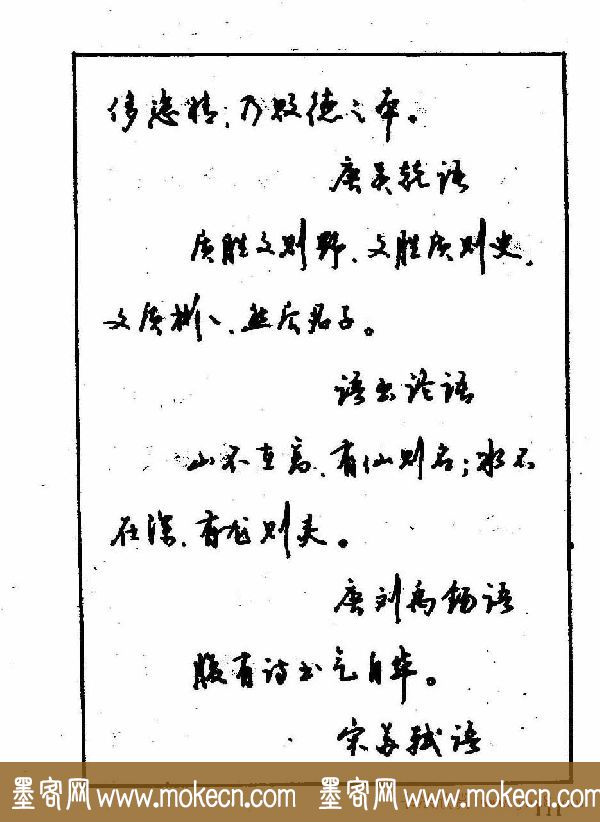 侈恣情，乃败德之本。
唐吴兢语
质胜文则野、文胜质则史，
文质彬彬、然后君子。
语出论语
山不在高，有仙则名；水不
在深，有龙则灵。
唐刘禹锡语
腹有诗书气自华。
宋苏轼语
墨客网 www.mokecn.com 墨客网 www.mokecn.com